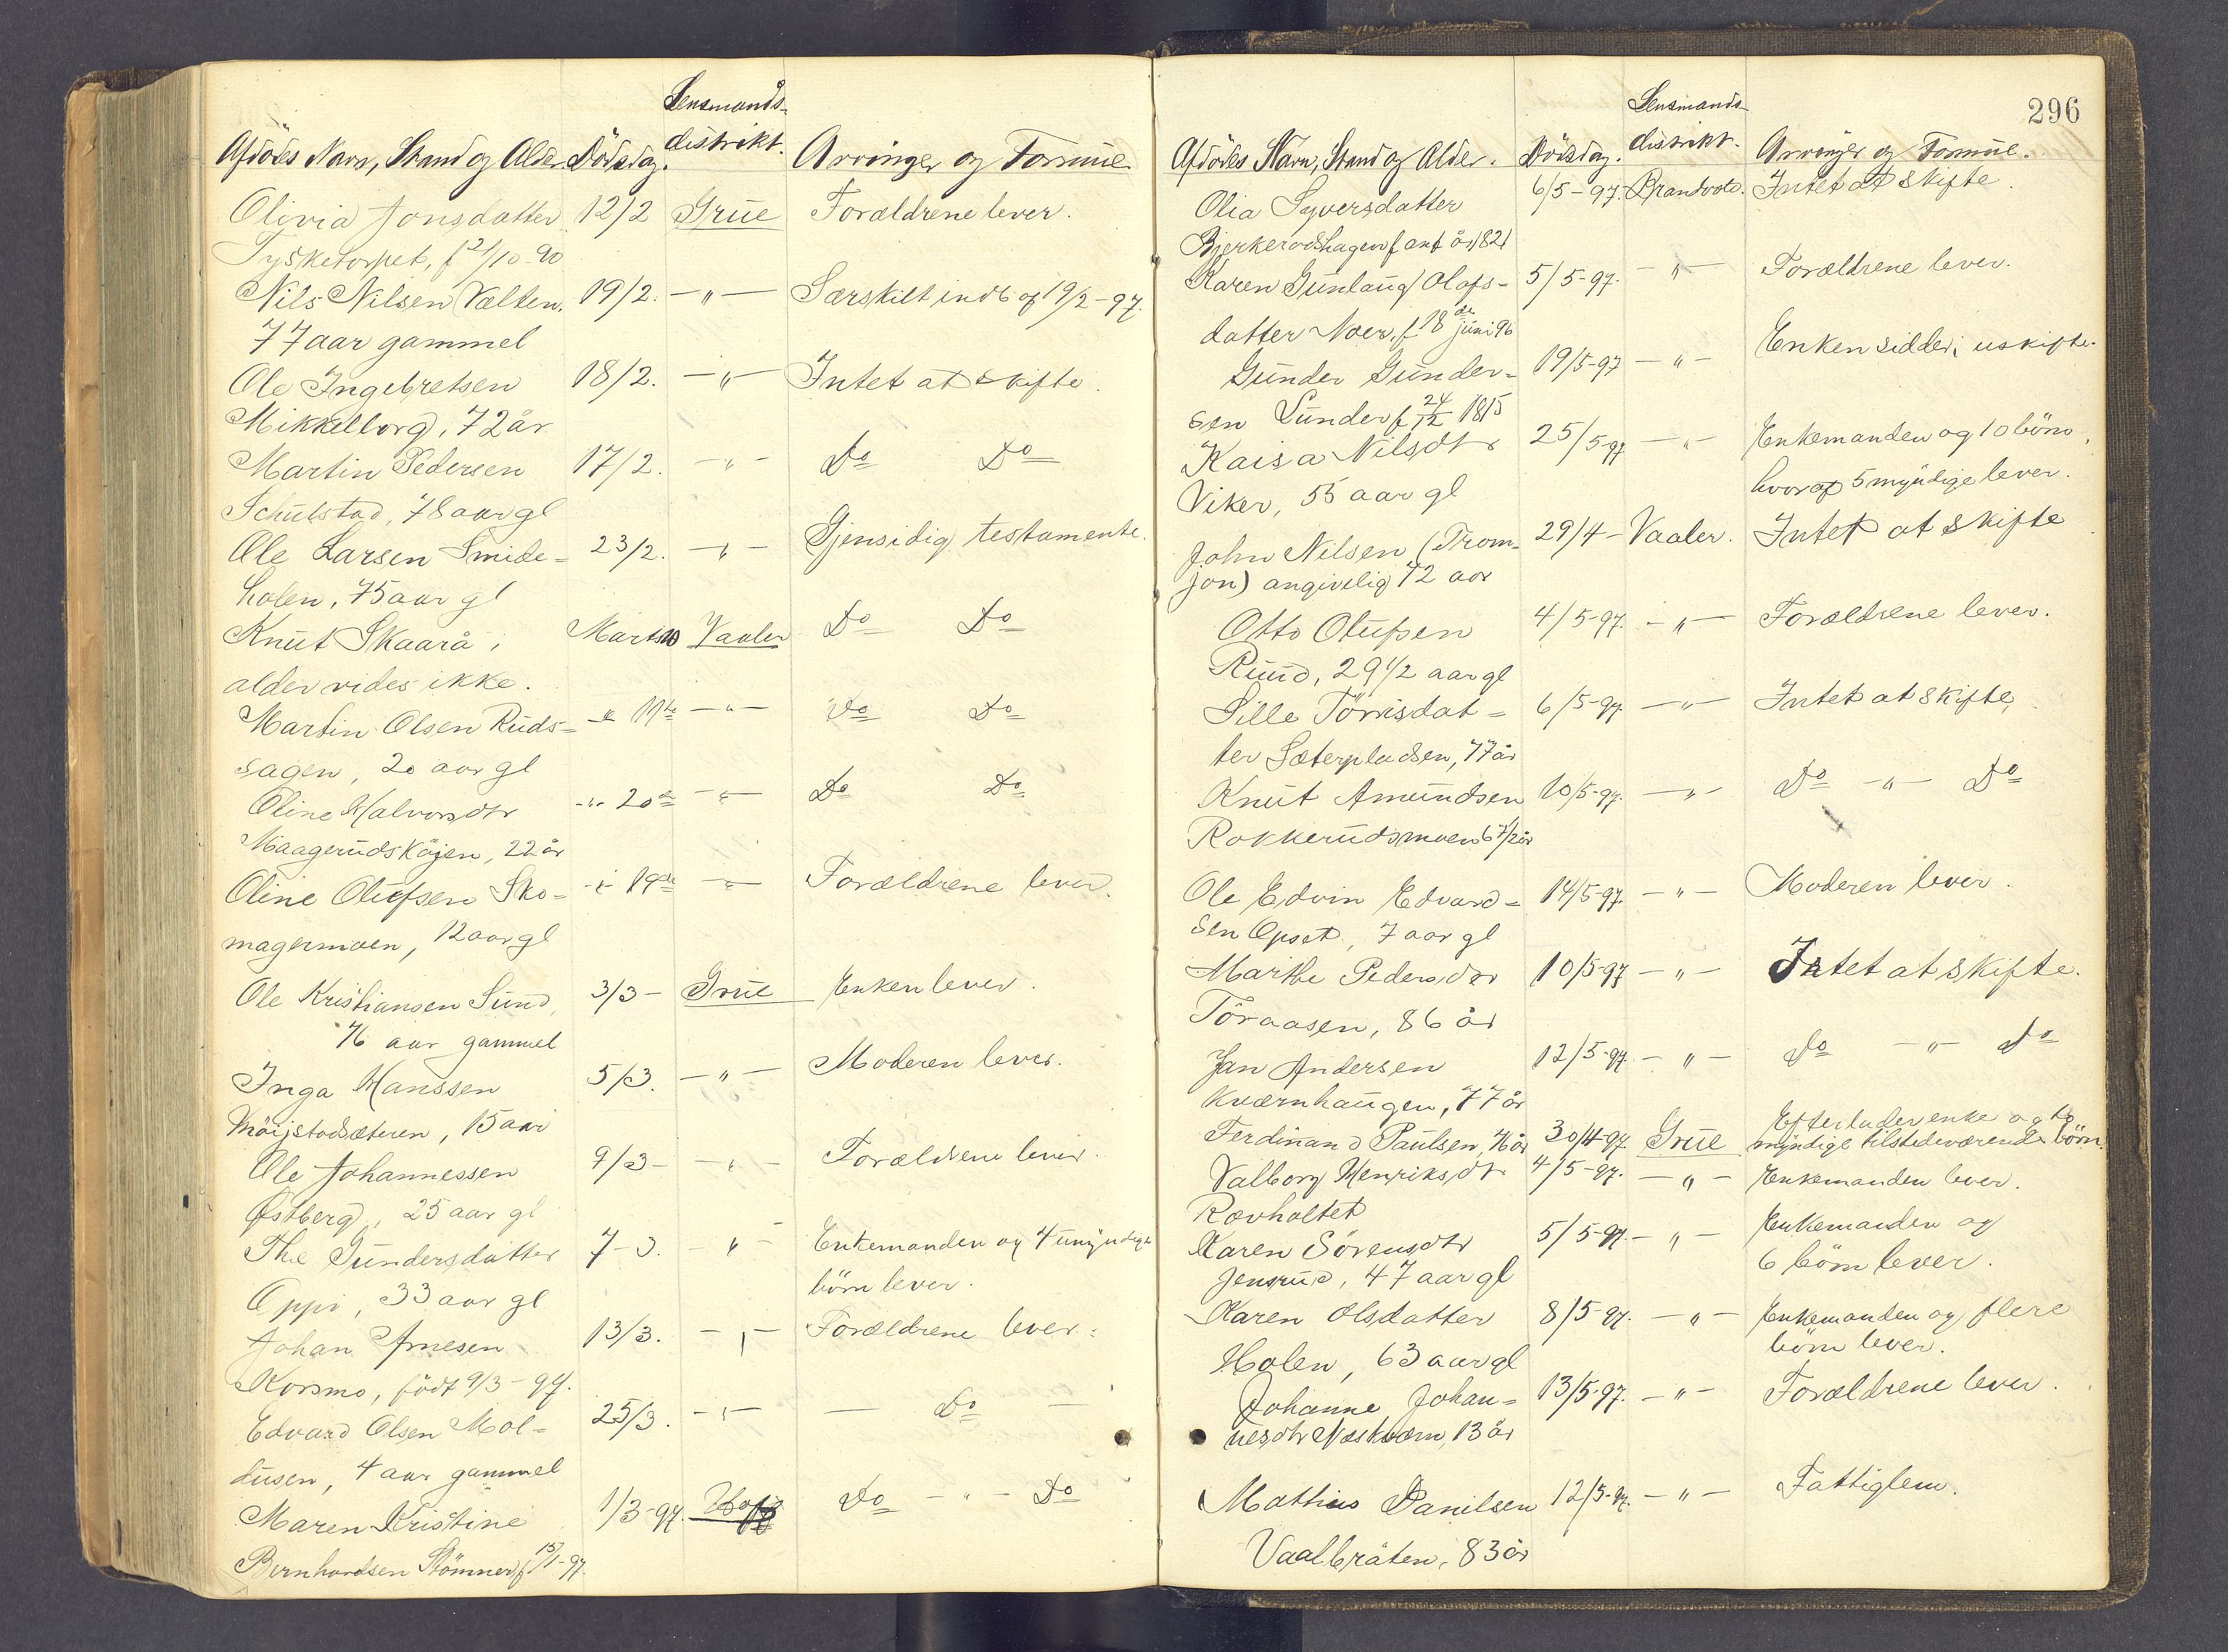 Lensmands-
Afdödes Navn, Stand og Alder. Dödsdag. distrikt. Arvinger og Formue
Olivia Jonsdatter 12/2 Grue Forældrene lever.
Tysketorpet, f 21/10-90
Nils Nilsen Vælten. 19/2. -"- Særskilt indb af 19/2-97.
77 aar gammel
Ole Ingebretsen 18/2. -"- Intet at skifte.
Mikkelborg, 72 år
Martin Pedersen 17/2. -"- Do Do
Schulstad, 78 aar gl
Ole Larsen Smide= 23/2. -"- Gjensidig testamente.
holen, 75 aar gl
Knut Skaarå, Marts 10 Vaaler Do Do
alder vides ikke.
Martin Olsen Ruds= -"- 11te -"- Do Do
sagen, 20 aar gl
Oline Halvorsdtr -"- 20de -"- Do Do
Maagerudsköjen, 22 år
Oline Olufsen Sko= -"- 19de -"- Forældrene lever.
magermoen, 12 aar gl
Ole Kristiansen Sund, 3/3- Grue Enken lever.
76 aar gammel
Inga Hanssen 5/3. -"- Moderen lever.
Möijstadsæteren, 15 aar
Ole Johannessen 9/3- -"- Forældrene lever.
Østberg, 25 aar gl
Thea Gundersdatter 7-3. -"- Enkemanden og 4 umyndige
Oppi, 33 aar gl börn lever.
Johan Arnesen 13/3. -"- Forældrene lever.
Korsmo, födt 9/3-97.
Edvard Olsen Mol= 25/3. -"- - Do -
dusen, 4 aar gammel
Maren Kristine 1/3-97. Hof Do -"- Do
Bernhardsen Stömner f 15/1-97.
296
Lensmands-
Afdödes Navn, Stand og Alder. Dödsdag. distrikt. Arvinger og Formue.
Olia Syversdatter 6/5-97. Brandvold. Intet at skifte.
Bjerkerudshagen f ant år 1821
Karen Gunlaug Olafs- 5/5-97. -"- Forældrene lever.
datter Noer, f 18de juni 96
Gunder Gunder= 19/5-97 -"- Enken sidder i uskifte.
sen Lunder f 24/12 1815
Kaisa Nilsdtr 25/5-97 -"- Enkemanden og 10 börn,
Viker, 55 aar gl hvoraf 5 myndige lever.
John Nilsen (Trom- 29/4- Vaaler. Intet at skifte
jon) angivelig 72 aar
Otto Olufsen 4/5-97. -"- Forældrene lever.
Ruud, 29 1/2 aar gl
Sille Törrisdat= 6/5-97. -"- Intet at skifte,
ter Sæterpladsen, 77 år
Knut Amundsen 10/5-97. -"- Do -"- Do
Rokkerudsmoen 67 1/2 år
Ole Edvin Edvard= 14/5-97. -"- Moderen lever.
sen Opset, 7 aar gl
Marthe Pedersdtr 10/5-97 -"- Intet at skifte.
Töraasen, 86 år
Jan Andersen 12/5-97. -"- Do -"- Do
Kværnhaugen, 77 år
Ferdinand Paulsen, 76 år 30/4-97. Grue Efterlader enke og to
myndige tilstedeværende börn.
Valborg Henriksdtr 4/5-97. -"- Enkemanden lever.
Rovholtet
Karen Sörensdtr 5/5-97. -"- Enkemanden og
Jensrud, 47 aar gl 6 börn lever.
Karen Olsdatter 8/5-97. -"- Enkemanden og flere
Holen, 63 aar gl börn lever.
Johanne Johan= 13/5-97. -"- Forældrene lever.
nesdtr Næskværn, 13 år
Mathias Danilsen 12/5-97. -"- Fattiglem.
Vaalbråten, 83 år